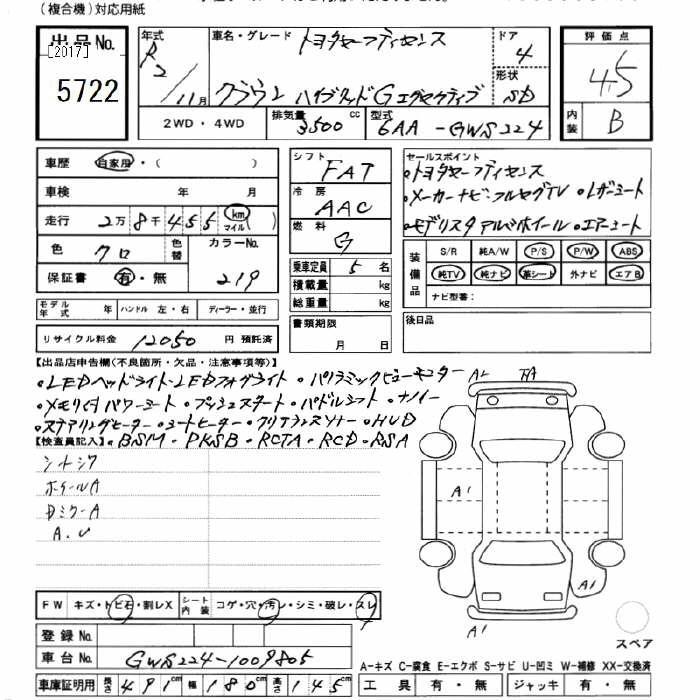 (複合機)対応用紙
出品No.
[2017]
5722
年式
R2/11月
車名・グレード
トヨタセーフティセンス
クラウン ハイブリッドG エグゼクティブ
ドア
4
形状
SD
評価点
4.5
内装
B
2WD・4WD
排気量
3500 cc
型式
6AA-GWS224
車歴 自家用・( )
車検 年 月
走行 2万8千455 km マイル ( )
色 クロ 色替 カラーNo. 219
保証書 有・無
モデル年式 年 ハンドル 左・右 ディーラー・並行
リサイクル料金 12050 円 預託済
シフト FAT
冷房 AAC
燃料 G
乗車定員 5 名
積載量 kg
総重量 kg
書類期限
月 日
セールスポイント
・トヨタセーフティセンス
・メーカーナビ・フルセグTV ・レザーシート
・モデリスタアルミホイール・エアーシート
装備品
S/R 純A/W P/S P/W ABS
純TV 純ナビ 革シート 外ナビ エアB
ナビ型番:
後日品
【出品店申告欄(不良箇所・欠品・注意事項等)】
・LEDヘッドライト・LEDフォグライト ・パノラミックビューモニター
・メモリ付パワーシート・プッシュスタート・パドルシフト・ナノイー
・ステアリングヒーター・シートヒーター・クリアランスソナー・HUD
【検査員記入】・BSM・PKSB・RCTA・RCD・RSA
シトシワ
ホイールA
DミラーA
A.U
A1
A2
A1
A1
FW キズ・トビ石・割レX シート内装 コゲ・穴・汚レ・シミ・破レ・スレ
登録No.
車台No. GWS224-1009805
車庫証明用 長さ 491cm 幅 180cm 高さ 145cm
スペア
A−キズ C−腐食 E−エクボ S−サビ U−凹ミ W−補修 XX−交換済
工具 有・無 ジャッキ 有・無